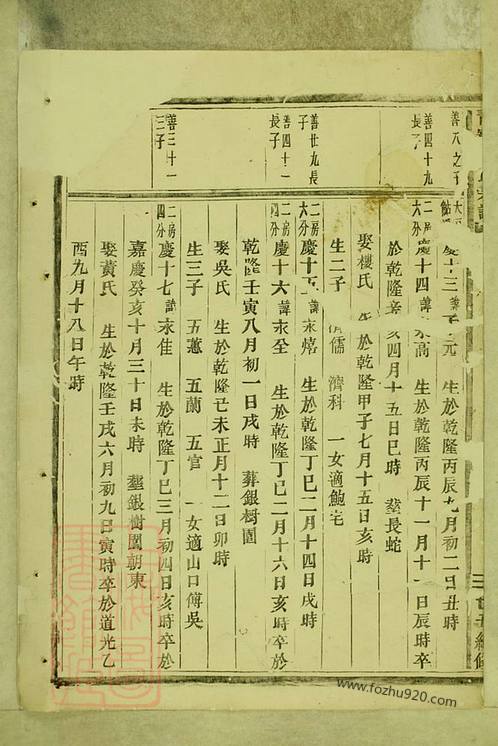 善四十九
長子
善廿九長
子
善四十一
長子
善三十一
三子
生於乾隆丙辰九月初二日丑時
二房六分慶十四諱永高 生於乾隆丙辰十一月十一日辰時卒
於乾隆辛亥四月十五日巳時 塟長蛇
娶樓氏 生於乾隆甲子七月十五日亥時
生二子 儒 濟科 一女適鮑宅
二房六分慶十五諱永熺 生於乾隆丁巳二月十四日戌時
二房四分慶十六諱永全 生於乾隆丁巳二月十六日亥時卒於
乾隆壬寅八月初一日戌時 葬銀樹園
娶吳氏 生於乾隆己未正月十二日卯時
生三子 五蕙 五蘭 五官 一女適山口傅吳
二房四分慶十七諱永佳 生於乾隆丁巳三月初四日亥時卒於
嘉慶癸亥十月三十日未時 塟銀樹園朝東
娶黃氏 生於乾隆壬戌六月初九日寅時卒於道光乙
酉九月十八日午時
www.fozhu920.com